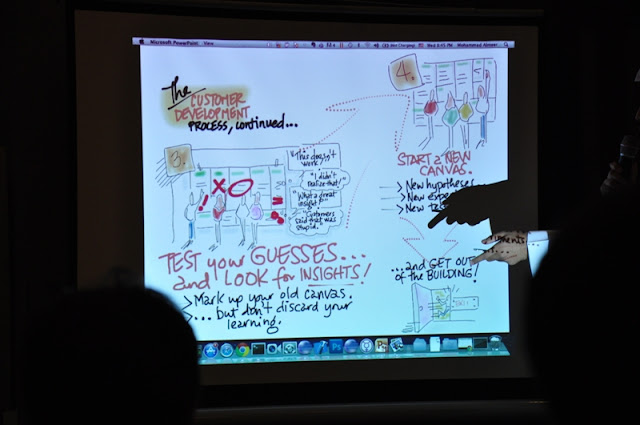 Microsoft PowerPoint View
The
CUSTOMER
DEVELOPMENT
PROCESS, continued...
3.
"This doesn't
work!"
"I didn't
realize that!"
"What a great
insight!"
"Customers
said that was
stupid."
TEST your GUESSES...
and LOOK for INSIGHTS!
> Mark up your old canvas.
> ... but don't discard your
learning.
4.
START A NEW
CANVAS.
> New hypotheses
> New
> New
...and GET OUT
of the BUILDING!